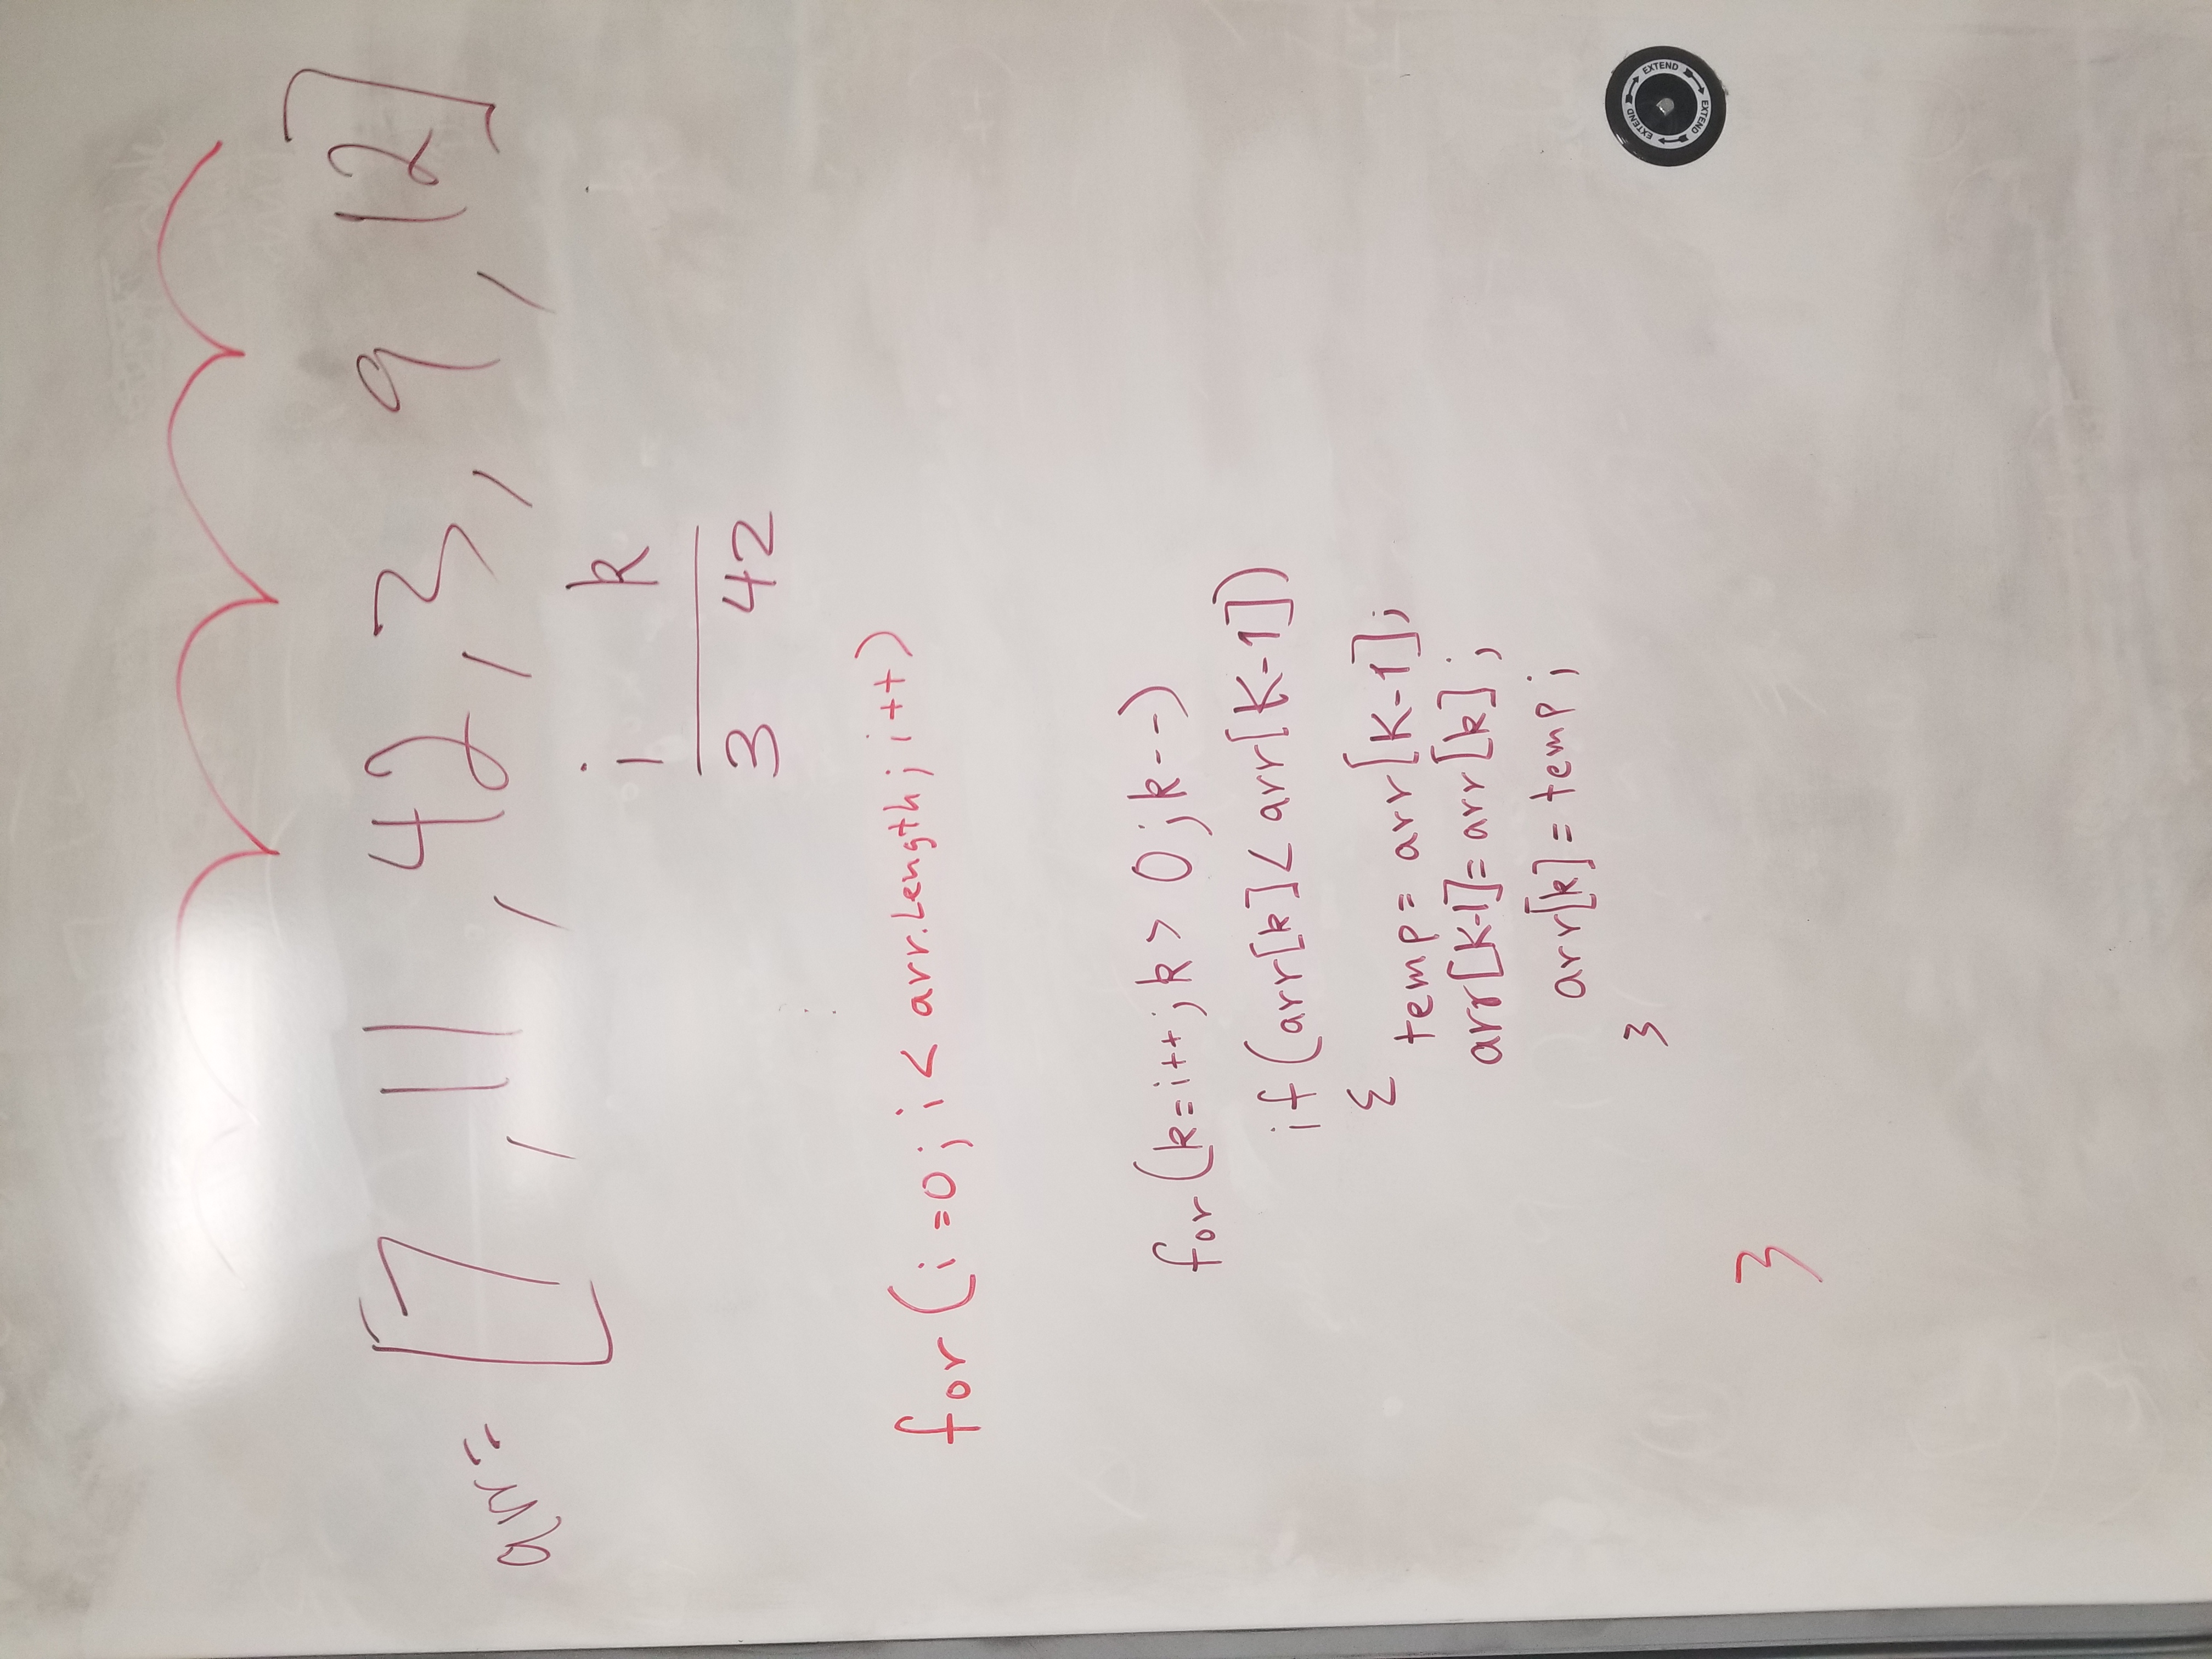 arr= [7, 11, 42, 3, 9, 12]
i k
3 42
for (i=0; i< arr.Length; i++)
for (k=i++; k> 0; k--)
if (arr[k]< arr[K-1])
{
temp= arr[K-1];
arr[K-1]= arr[k];
arr[k]= temp;
}
}
EXTEND EXTEND EXTEND